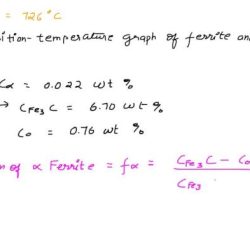 = 726°C
ition-temperature graph of ferrite an
Cα = 0.022 wt %
→ CFe3C = 6.70 wt %
Co = 0.76 wt %
n of α Ferrite = fα = CFe3C - Co
CFe3